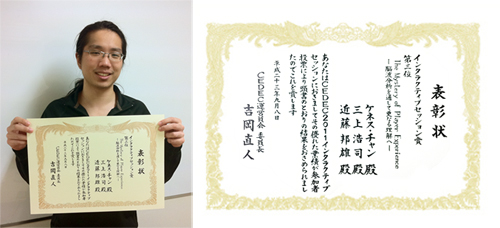 表彰状
インタラクティブセッション賞
第三位
The Mystery of Player Experience
ケネス・チャン 殿
三上浩司 殿
近藤邦雄 殿
あなたはCEDEC2011インタラクティブ
セッションにおきましてその優れた業績が参加者
投票により頭書のとおりの結果をおさめられまし
たのでこれを賞します
平成二十三年九月八日
CEDEC運営委員会 委員長
吉岡直人